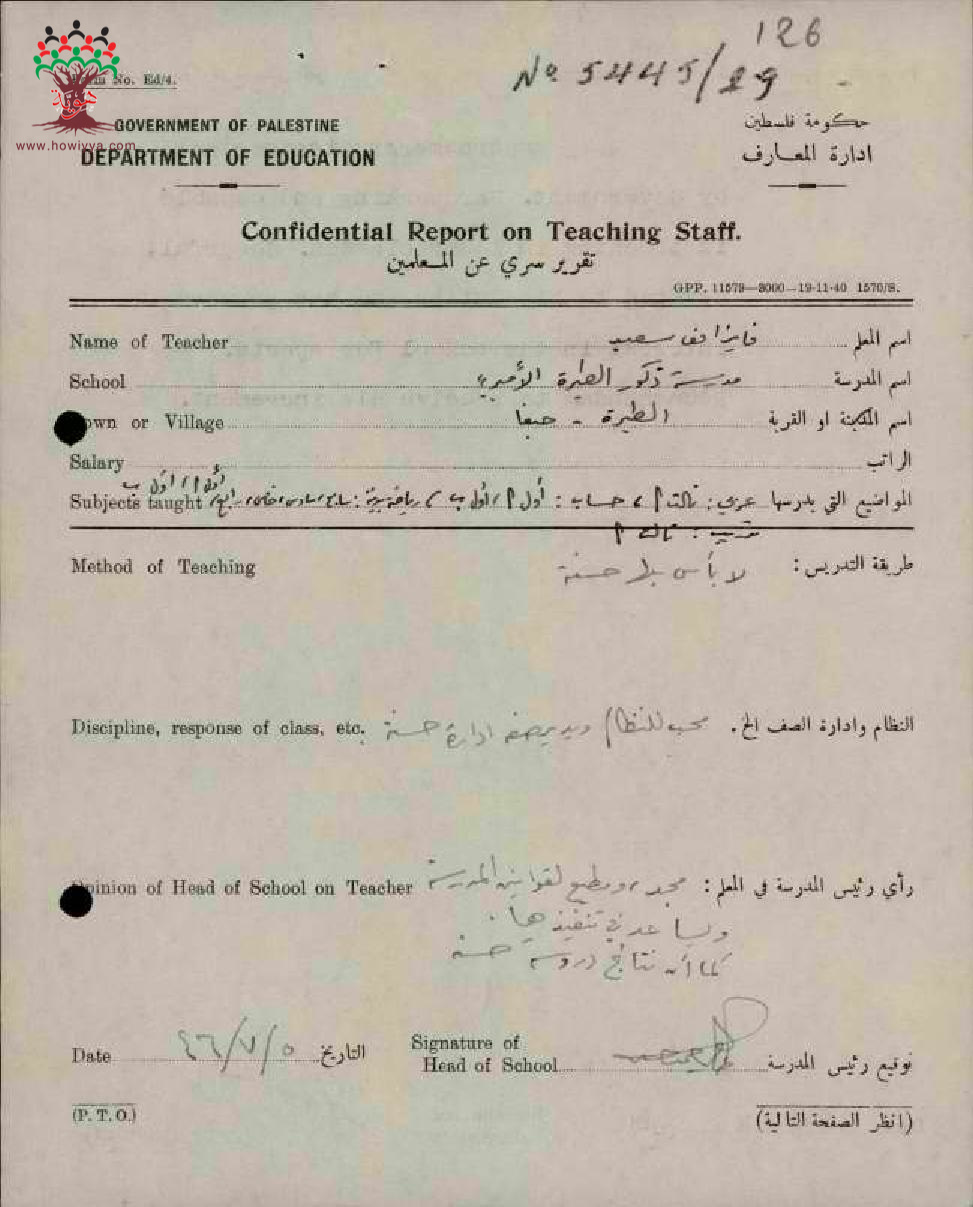 126
No 5445/29
No. Ed/4.
www.howiyya.com
GOVERNMENT OF PALESTINE
حكومة فلسطين
DEPARTMENT OF EDUCATION
ادارة المعارف
Confidential Report on Teaching Staff.
تقرير سري عن المعلمين
GPP. 11579—3000—19-11-40 1570/S.
Name of Teacher فايز سعيد اسم المعلم
School مدرسة ذكور الطيرة الأميرية اسم المدرسة
Town or Village الطيرة - حيفا اسم المدينة او القرية
Salary الراتب
أول أ، أول ب
Subjects taught المواضيع التي يدرسها عربي: ثالث أ، حساب: أول أ، أول ب، رياضة بدنية: سابع، سادس، خامس، رابع،
ثالث أ
Method of Teaching لا بأس بها حسنة طريقة التدريس:
Discipline, response of class, etc. محب للنظام ويدير صفه ادارة حسنة النظام وادارة الصف الخ.
Opinion of Head of School on Teacher مجد، ومطيع لقوانين المدرسة رأي رئيس المدرسة في المعلم:
ويساعد في تنفيذها.
كما أن نتائج دروسه حسنة
Date ٤٦/٧/٥ التاريخ
Signature of
Head of School توقيع رئيس المدرسة
(P. T. O.) (انظر الصفحة التالية)